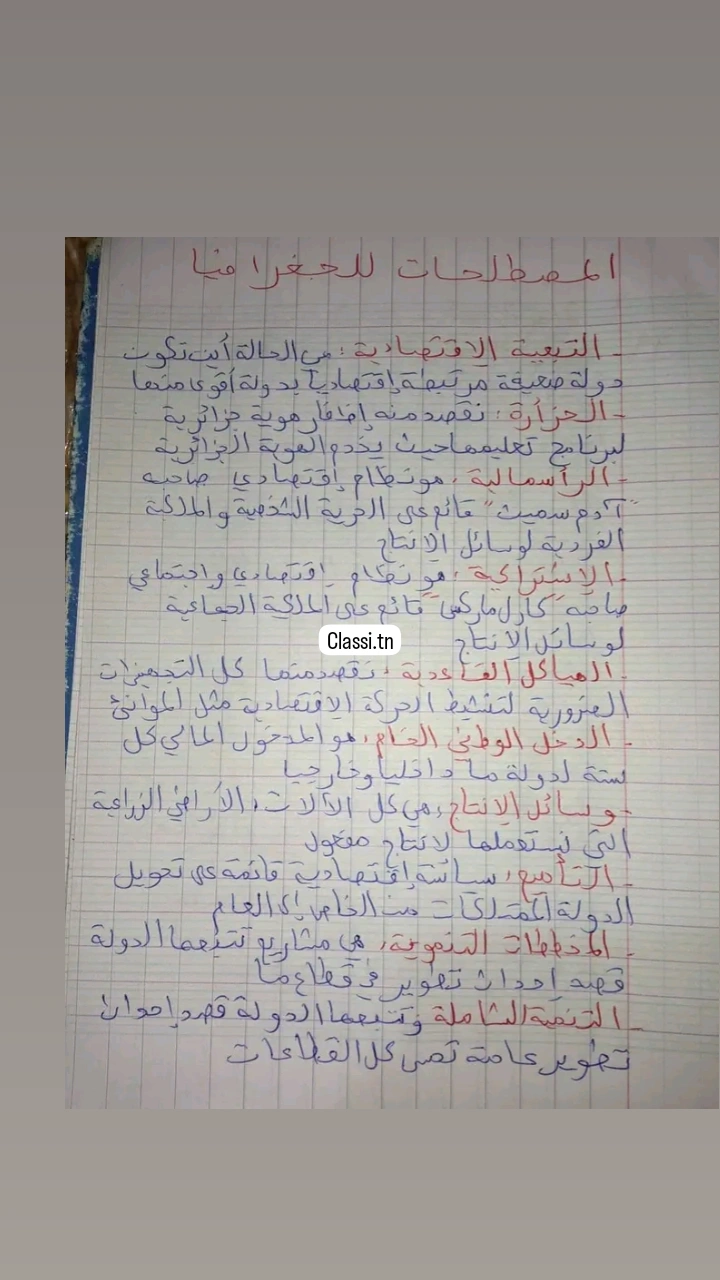 المصطلحات للجغرافيا
- التبعية الاقتصادية: هي الحالة أين تكون
دولة ضعيفة مرتبطة إقتصاديا بدولة أقوى منها
- الجزأرة: نقصد منه إظفار هوية جزائرية
لبرنامج تعليمها حيث يخدم الهوية الجزائرية
- الرأسمالية: هو نظام إقتصادي صاحبه
"آدم سميث" قائم على الحرية الشخصية والملكية
الفردية لوسائل الانتاج
- الاشتراكية: هو نظام إقتصادي واجتماعي
صاحبه "كارل ماركس" قائم على الملكية الجماعية
لوسائل الانتاج
Classi.tn
- الهياكل القاعدية: نقصد منها كل التجهيزات
الضرورية لتنشيط الحركة الاقتصادية مثل الموانئ
- الدخل الوطني الخام: هو المدخول المالي كل
سنة لدولة ما داخليا وخارجيا
- وسائل الانتاج: هي كل الآلات، الأراضي الزراعية
التي نستعملها لانتاج
- التأميم: سياسة إقتصادية قائمة على تحويل
الدولة الممتلكات من الخاص إلى العام
- المخططات التنموية: هي مشاريع تتبعها الدولة
قصد إحداث تطوير في قطاع ما
- التنمية الشاملة: وتتبعها الدولة قصد إحداث
تطوير عامة تمس كل القطاعات